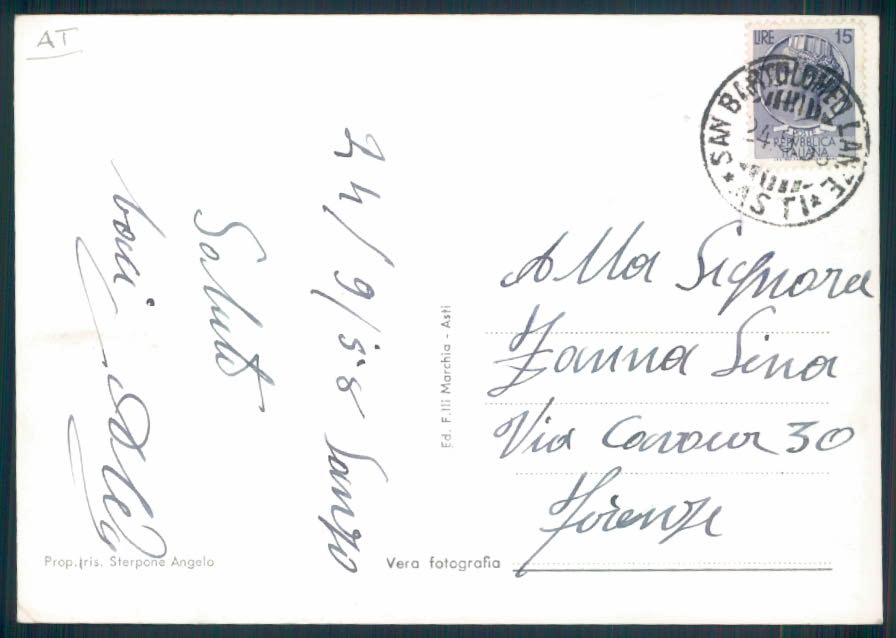 AT
LIRE 15
REPVBBLICA
ITALIANA
SAN BARTOLOMEO LANZE
* ASTI *
24/9/58
Saluti
Ed. F.lli Marchia - Asti
Alla Signora
Zanna Lina
Via Cavour 30
Firenze
Prop. ris. Sterpone Angelo
Vera fotografia